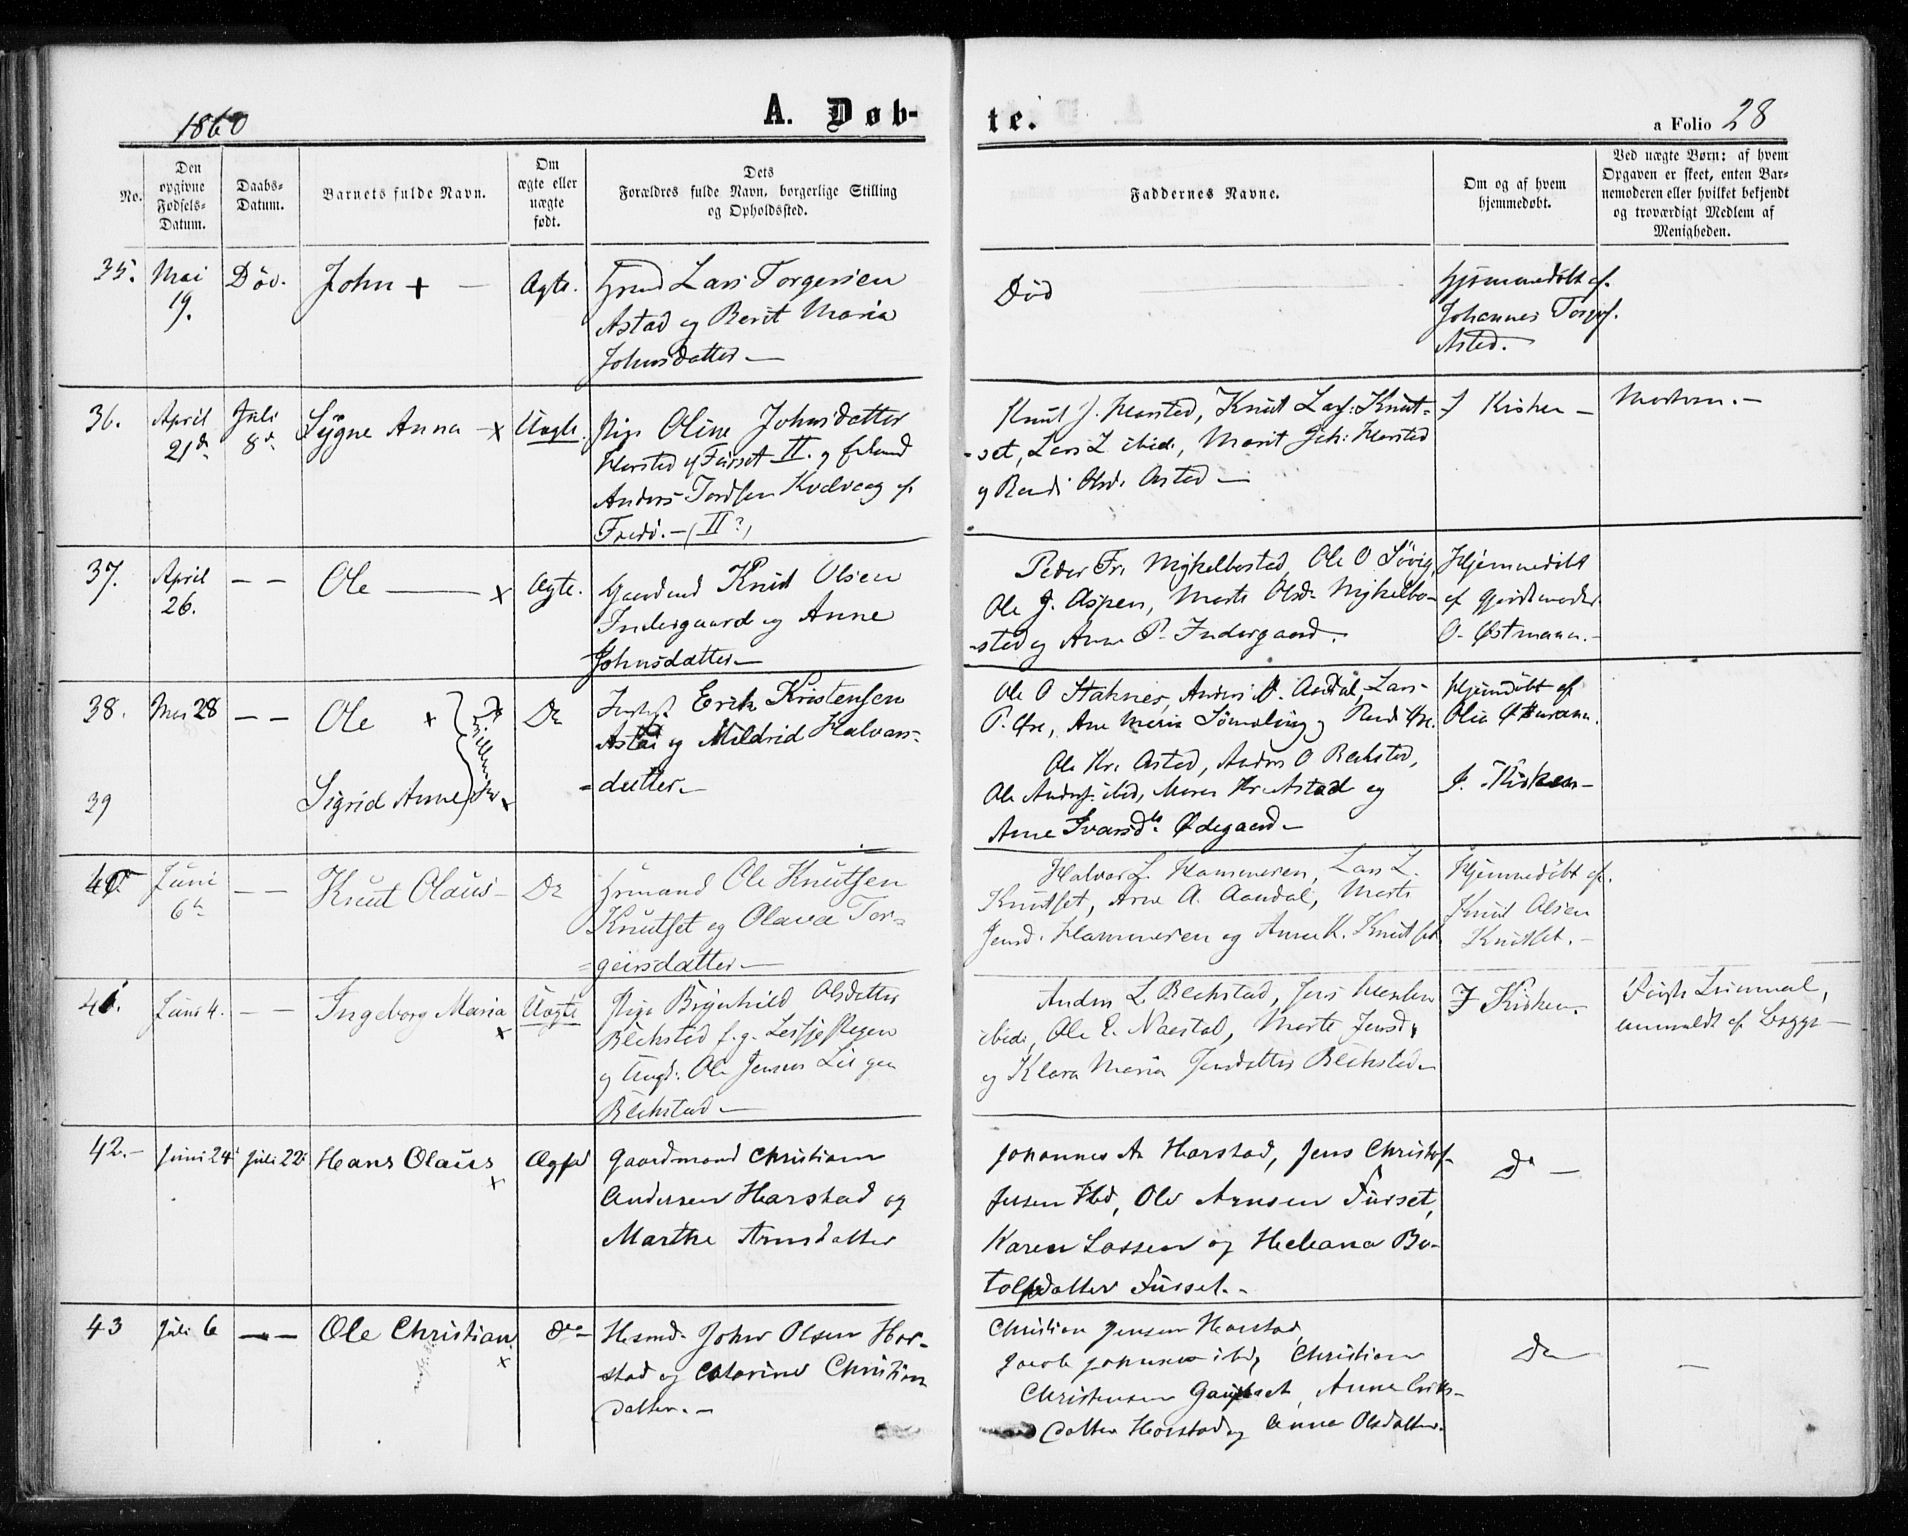 1860
A. Døb-
te.
a Folio 28
No.
Den
opgivne
Fødsels-
Datum.
Daabs-
Datum.
Barnets fulde Navn.
Om
ægte eller
uægte
født.
Dets
Forældres fulde Navn, borgerlige Stilling
og Opholdssted.
Faddernes Navne.
Om og af hvem
hjemmedøbt.
Ved uægte Børn: af hvem
Opgaven er skeet, enten Bar-
nemoderen eller hvilket bekjendt
og troværdigt Medlem af
Menigheden.
35.
Mai
19.
Døv.
John +
Ægte.
Lars Torgersen
Astad og Berit Maria
Johnsdatter
Død
Hjemmedøbt af
Johannes
Astad.
36.
April
21de
Juli
8de
Sygne Anna x
Uægte.
Pige Oline Johnsdatter
Harsted af Furset II. og
Anders Kvalvaag af
Fredø. (II?)
Knut J. Harsted, Knut Lars: Knut-
set, Lars L ibid, Marit Joh: Harsted
og Randi Olsd. Astad
I Kirken
37.
April
26.
Ole x
Ægte.
Gaardmd Knud Olsen
Indergaard og Anne
Johnsdatter
Peder Fr. Myhelbostad, Ole O
Ole J. Aspen, Marte Olsd. Myhelbo-
stad og Anne P. Indergaard.
Hjemmedøbt
af Gjordemoder
O. Østmann.
38.
Mai 28
Ole +
Tvillinger
Do
Erik Kristensen
Astad og Mildrid Halvars-
datter
Ole O Staknes, Anders A. Aandal, Lars
P. Øre, Ane Maria og Randi Øre.
Hjemdøbt af
Olia Østmann.
39
Sigrid Anne x
Ole Kr. Astad, Anders O Blekstad,
Ole Anders. ibid, Maren Kr. Astad og
Anne Ivarsd. Ødegaard
I Kirken
40
Juni
6te
Knut Olaus
Do
Ole Knutsen
Knutset og Olava Tor-
geirsdatter
Halvor L. Hammeren, Lars L.
Knutset, Arne A. Aandal, Marte
Jensd. Hammeren og Anne K. Knutset
Hjemmedøbt af
Knud Olsen
Knutset.
41.
Juni 4.
Ingeborg Maria x
Uægte
Pige Brynhild Olsdatter
Blekstad f. g.
og Ungk. Ole Jensen
Blekstad
Anders L. Blekstad, Jens
ibid, Ole E. Naastad, Marte Jensd.
og Klara Maria Jensdatter Blekstad
I Kirken.
anmeldt af
42.
Juni 24
Juli 22
Hans Olaus x
Ægte
Gaardmand Christian
Andersen Harstad og
Marthe Arnsdatter
Johannes A. Harstad, Jens Christof-
fersen Ibid, Ole Arnsen Furset,
Karen Lassen og Heleana Bo-
tolfsdatter Furset.
Do
43
Juli 6
Ole Christian x
Do
Husmd. John Olsen Har-
stad og Catarine Christian
datter.
Christian Jensen Harstad,
Jacob Johnsen ibid, Christian
Christensen Gaupset, Anne Eriks-
datter Harstad og Anne Olsdatter.
Do